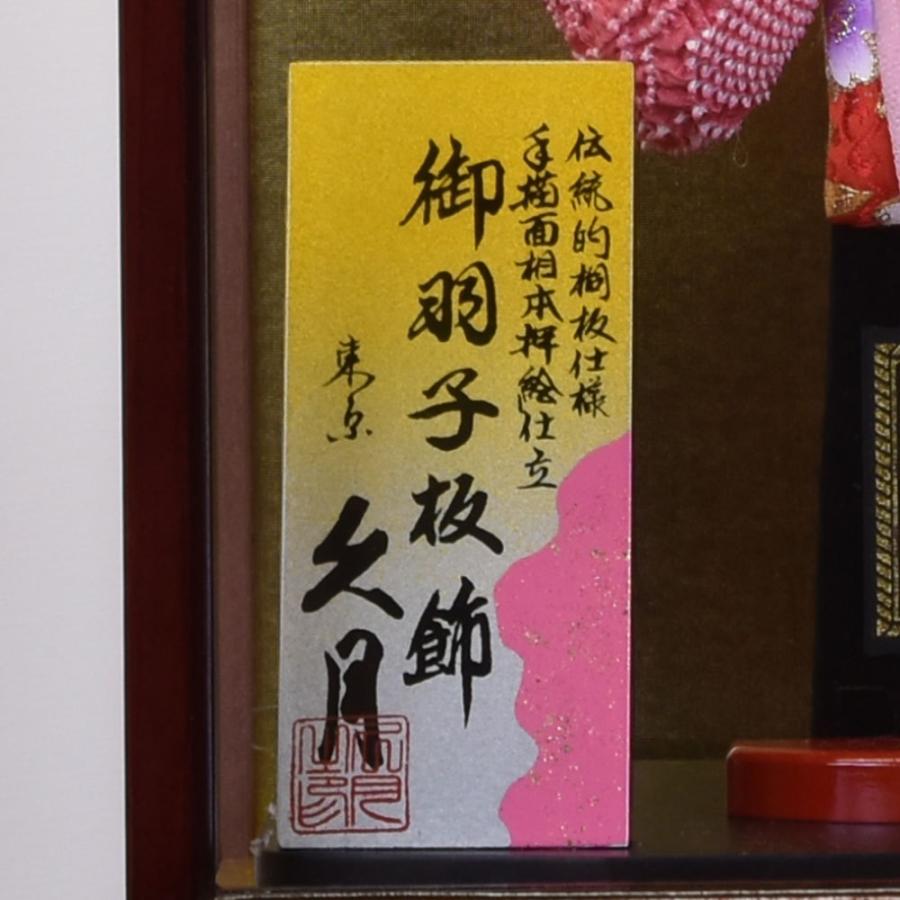 伝統的桐板仕様
手描面相本押絵仕立
御羽子板飾
東京
久月
久月之印